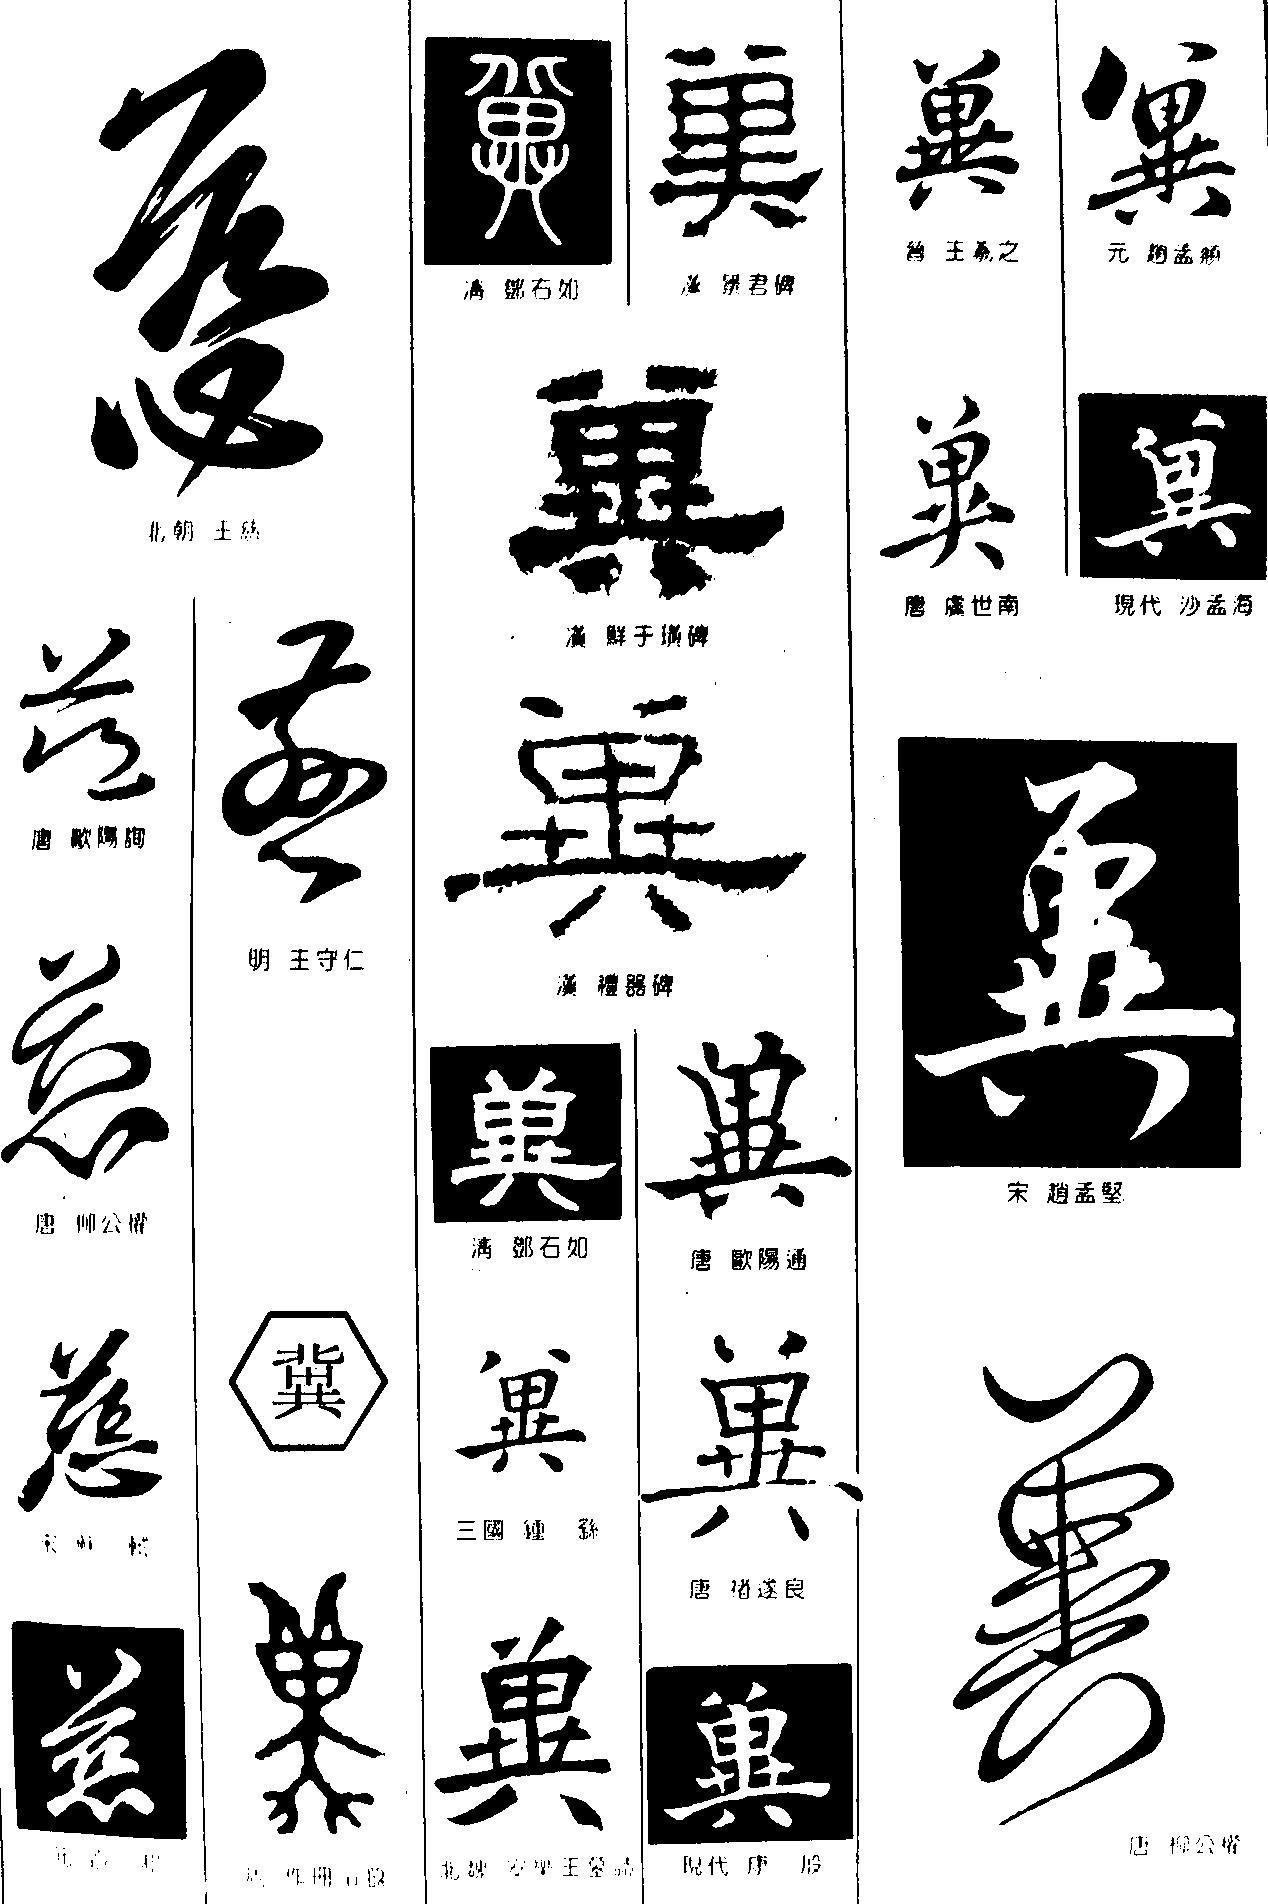 北朝 王慈
唐 歐陽詢
唐 柳公權
明 王守仁
冀
清 鄧石如
漢 景君碑
漢 鮮于璜碑
漢 禮器碑
清 鄧石如
唐 歐陽通
三國 鍾繇
唐 褚遂良
北魏 安樂王墓誌
現代 康殷
晉 王羲之
元 趙孟頫
唐 虞世南
現代 沙孟海
宋 趙孟堅
唐 柳公權